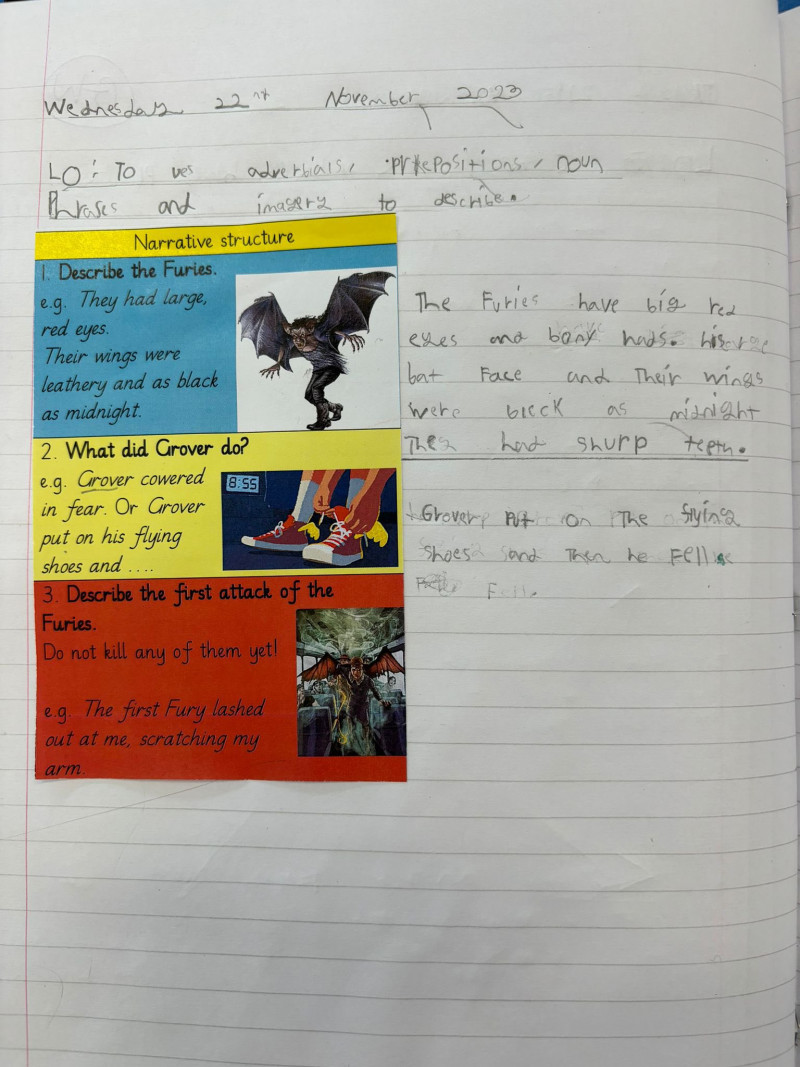 Wednesday 22nd November 2023
LO: To ues adverbials, prepositions, noun
Phrases and imagery to describe.
Narrative structure
1. Describe the Furies.
e.g. They had large,
red eyes.
Their wings were
leathery and as black
as midnight.
2. What did Grover do?
e.g. Grover cowered
in fear. Or Grover
put on his flying
shoes and ....
8:55
3. Describe the first attack of the
Furies.
Do not kill any of them yet!
e.g. The first Fury lashed
out at me, scratching my
arm.
The Furies have big red
eyes and bony hads.
bat Face and Their wings
were bleck as midnight
They had shurp teeth.
Grover Put on The flying
shoes and Then he Fell
Fell.